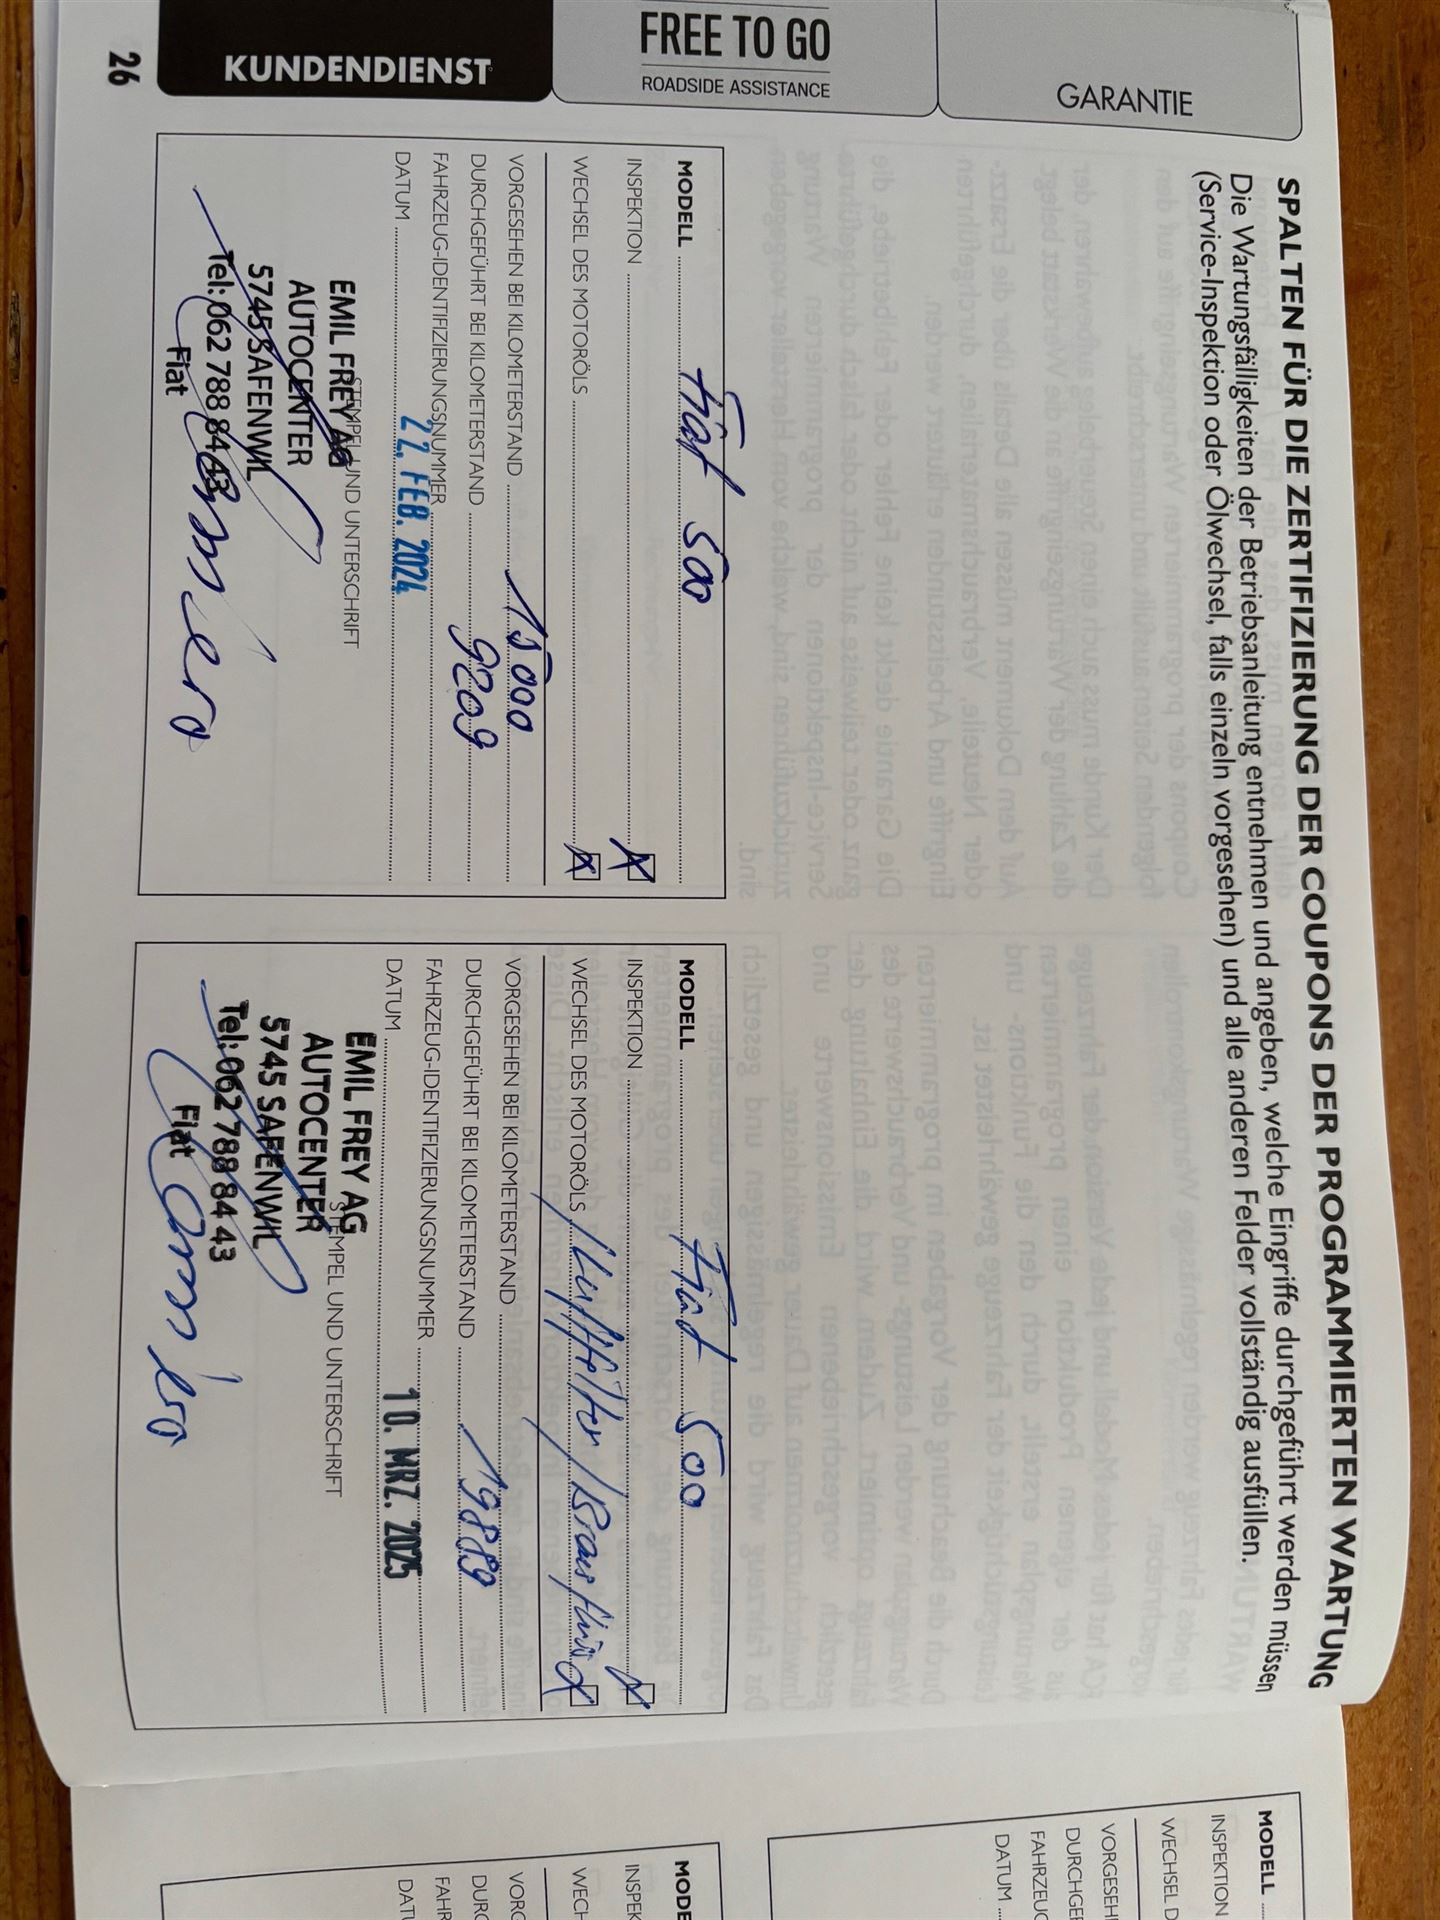 GARANTIE
FREE TO GO
ROADSIDE ASSISTANCE
KUNDENDIENST
26
SPALTEN FÜR DIE ZERTIFIZIERUNG DER COUPONS DER PROGRAMMIERTEN WARTUNG
Die Wartungsfälligkeiten der Betriebsanleitung entnehmen und angeben, welche Eingriffe durchgeführt werden müssen
(Service-Inspektion oder Ölwechsel, falls einzeln vorgesehen) und alle anderen Felder vollständig ausfüllen.
MODELL Fiat 500
INSPEKTION X
WECHSEL DES MOTORÖLS X
VORGESEHEN BEI KILOMETERSTAND 15000
DURCHGEFÜHRT BEI KILOMETERSTAND 9209
FAHRZEUG-IDENTIFIZIERUNGSNUMMER
DATUM 22. FEB. 2024
STEMPEL UND UNTERSCHRIFT
EMIL FREY AG
AUTOCENTER
5745 SAFENWIL
Tel: 062 788 84 43
Fiat
MODELL Fiat 500
INSPEKTION X
WECHSEL DES MOTORÖLS / Luftfilter / X
VORGESEHEN BEI KILOMETERSTAND
DURCHGEFÜHRT BEI KILOMETERSTAND 19889
FAHRZEUG-IDENTIFIZIERUNGSNUMMER
DATUM 10. MRZ. 2025
STEMPEL UND UNTERSCHRIFT
EMIL FREY AG
AUTOCENTER
5745 SAFENWIL
Tel: 062 788 84 43
Fiat
MODELL
INSPEKTION
WECHSEL D
VORGESEH
DURCHGEF
FAHRZEUG
DATUM
MODE
INSPEK
WECH
VORG
DURC
FAHR
DATU